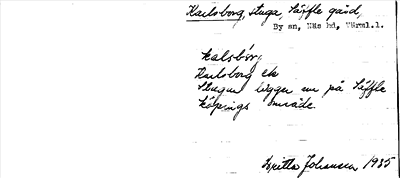 Karlsborg, stuga, Säffle gård,
By sn, Näs hd, Värml.l.
kalsbór,
Karlsborg
Stugan ligger nu på Säffle
köpings område.
Britta Johansson 1935